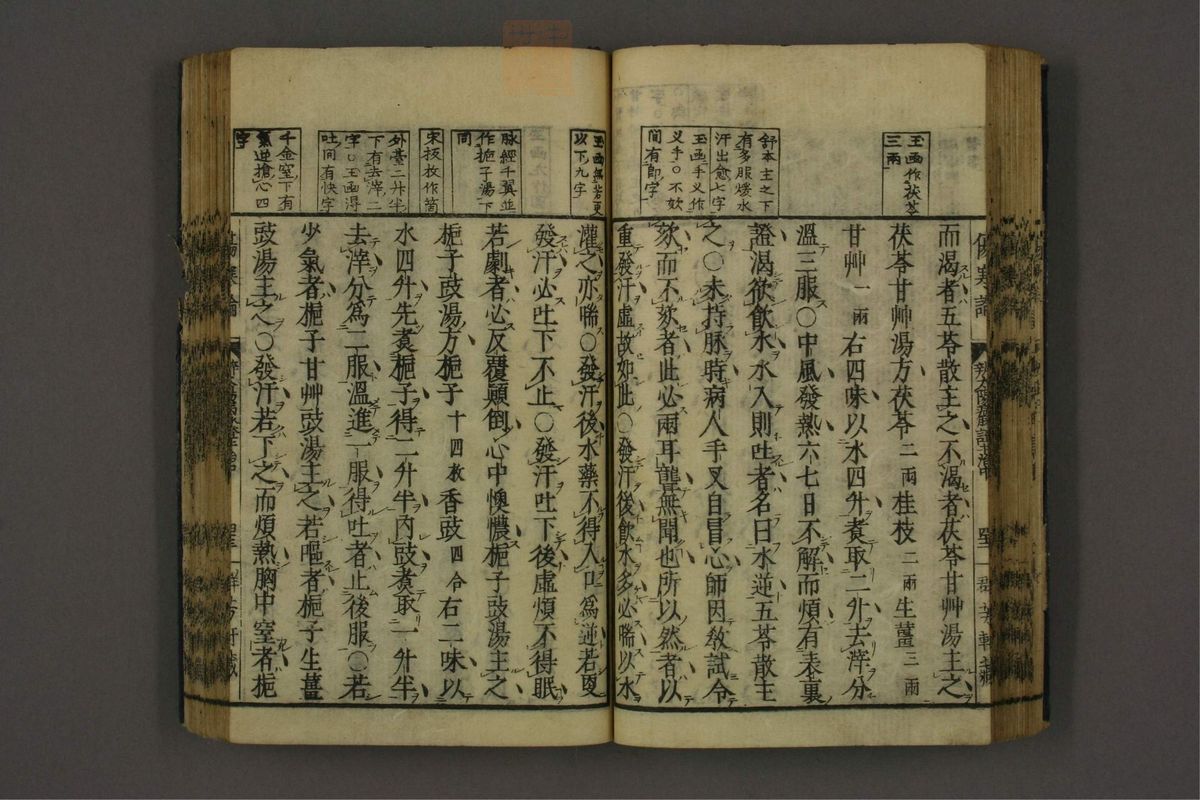 玉函作茯苓
三兩
舒本主之下
有多服煖水
汗出愈七字
玉函手义作
义手〇不欬
間有即字
傷寒論
而渴者五苓散主之不渴者茯苓甘艸湯主之
茯苓甘艸湯方茯苓二兩桂枝二兩生薑三兩
甘艸一兩右四味以水四升煑取二升去滓分
溫三服〇中風發熱六七日不解而煩有表裏
證渴欲飲水水入則吐者名曰水逆五苓散主
之〇未持脉時病人手叉自冒心師因敎試令
欬而不欬者此必兩耳聾無聞也所以然者以
重發汗虛故如此〇發汗後飲水多必喘以水
玉函無若更
以下九字
脉經千翼並
作梔子湯下
同
宋板枚作箇
外臺二升半
下有去滓二
字〇玉函得
吐間有快字
千金窒下有
氣逆搶心四
字
灌之亦喘〇發汗後水藥不得入口爲逆若更
發汗必吐下不止〇發汗吐下後虛煩不得眠
若劇者必反覆顚倒心中懊憹梔子豉湯主之
梔子豉湯方梔子十四枚香豉四合右二味以
水四升先煑梔子得二升半內豉煑取一升半
去滓分爲二服溫進一服得吐者止後服〇若
少氣者梔子甘艸豉湯主之若嘔者梔子生薑
豉湯主之〇發汗若下之而煩熱胸中窒者梔